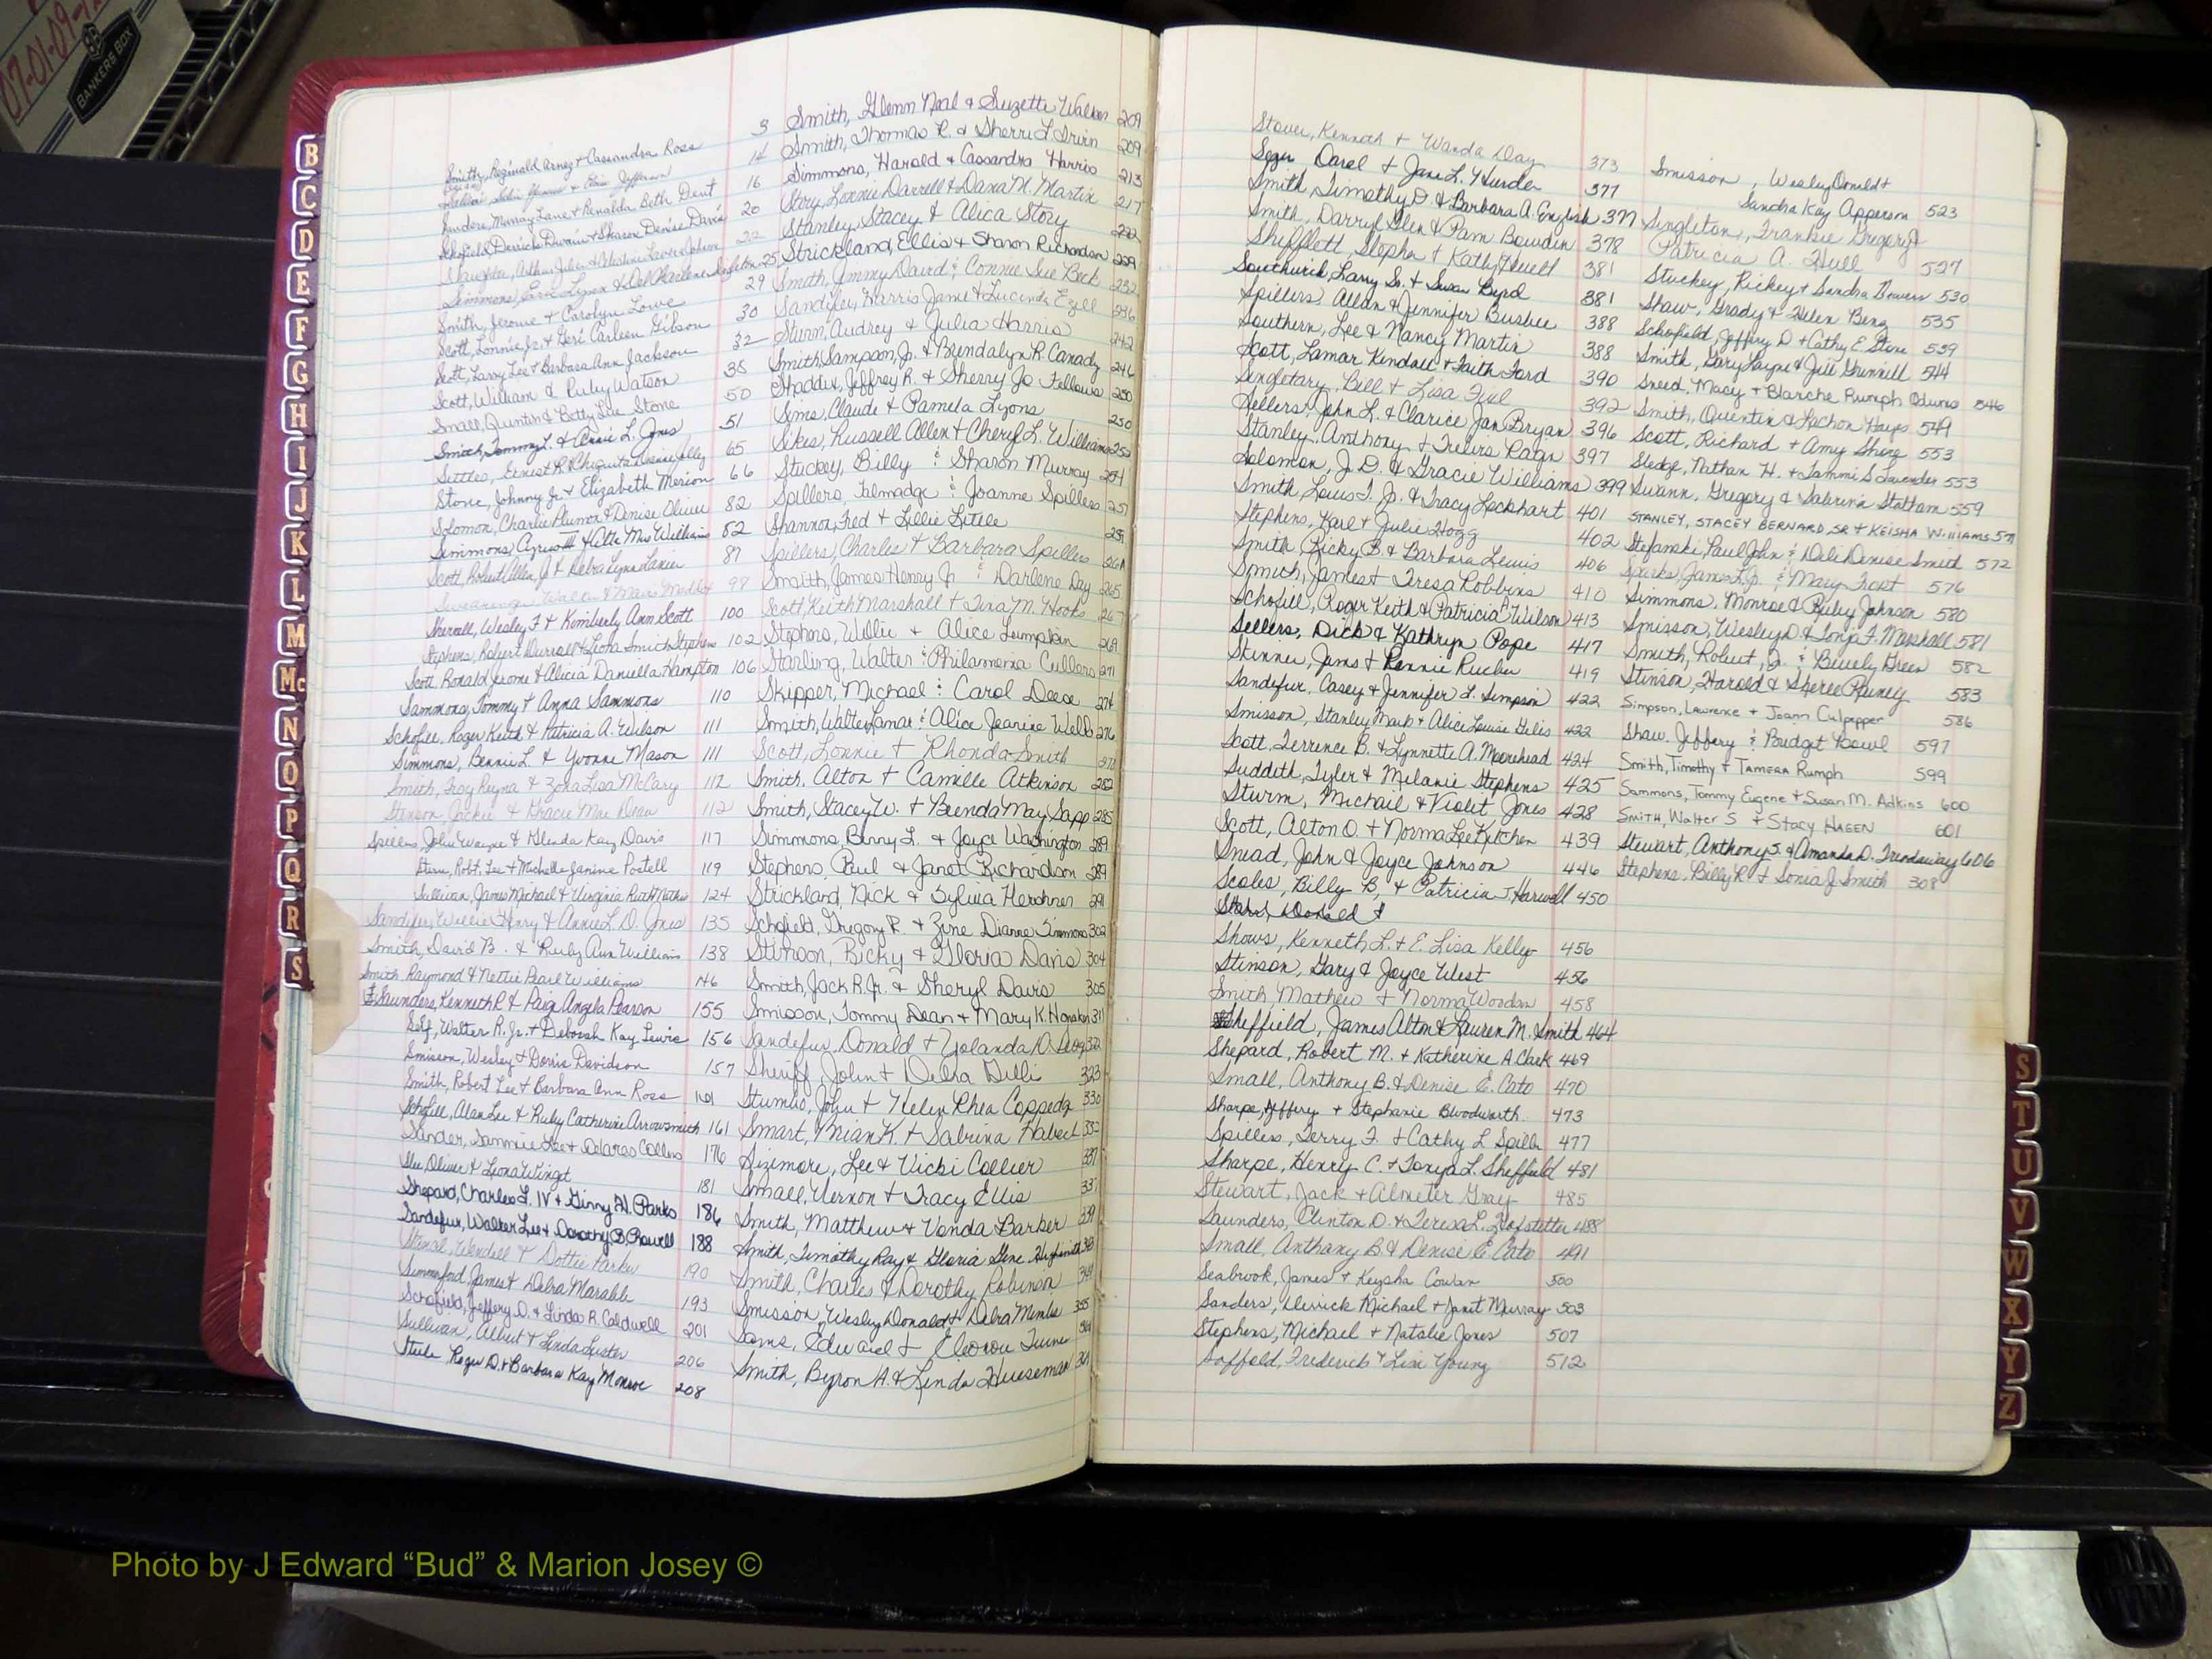 07-01-09-
BANKERS BOX
B
C
D
E
F
G
H
I
J
K
L
M
Mc
N
O
P
Q
R
S
Smith, Reginald Arnez + Cassandra Ross 3
14
Sanders, Murray Lane + Renalda Beth Dent 16
Schofield, Derrick Dwain + Sharon Denise Davis 20
22
25
Smith, Jerome + Carolyn Lowe 29
Scott, Lonnie Jr. + Geri Carleen Gibson 30
Scott, Larry Lee + Barbara Ann Jackson 32
Scott, William & Ruby Watson 35
Small, Quintin & Betty Sue Stone 50
Smith, Tommy L. & Annie L. Jones 51
Settles, Ernest R. 65
Stone, Johnny Jr + Elizabeth Merion 66
Solomon, Charlie Plumer & Denise Oliver 82
Simmons, Cyrus III & Alta Mae Williams 82
Scott, Robert Allen Jr & Debra Lynn Lanier 87
98
Sherrell, Wesley F + Kimberly Ann Scott 100
Stephens, Robert Durrell + Leona Smith Stephens 102
Scott, Ronald Jerome & Alicia Daniella Hampton 106
Sammons, Tommy + Anna Sammons 110
Schofill, Roger Keith & Patricia A. Wilson 111
Simmons, Bennie L. & Yvonne Mason 111
Smith, Troy Reyna & Zona Lisa McCary 112
Stinson, Jackie & Gracie Mae Dean 112
Spillers, John Wayne & Glenda Kay Davis 117
Stern, Robt. Lee + Michelle Janine Postell 119
Sullivan, James Michael & Virginia Ruth 124
Sandifer, Willie Henry & Annie L. D. Jones 135
Smith, David B. & Ruby Ann Williams 138
Smith, Raymond & Nettie Pearl Williams 146
Saunders, Kenneth R & Paige Angela Pearson 155
Self, Walter R. Jr. + Deborah Kay Lewis 156
Smisson, Wesley & Dorris Davidson 157
Smith, Robert Lee + Barbara Ann Ross 161
Schofill, Alan Lee & Ruby Catherine Arrowsmith 161
Sander, Sammie Lee + Delores Collins 176
Slee, Oliver & Leona Wingt 181
Shepard, Charles L. IV + Ginny H. Parks 186
Sandefur, Walter Lee + Dorothy B. Powell 188
Stencil, Wendell + Dottie Parker 190
Summerford, James + Debra Marable 193
Scofield, Jeffery D. & Linda R. Caldwell 201
Sullivan, Albert + Linda Luster 206
Steele, Roger D. + Barbara Kay Monroe 208
Smith, Glenn Neal & Suzette Walker 209
Smith, Thomas R. & Sherri L Irwin 209
Simmons, Harold & Cassandra Harris 213
Story, Lonnie Darrell & Dana M. Martin 217
Stanley, Stacey & Alica Story 222
Strickland, Ellis + Sharon Richardson 229
Smith, Jimmy David & Connie Sue Beck 232
Sandifer, Harris Jame & Lucinda Ezell 236
Sturm, Audrey & Julia Harris 242
Smith, Sampson, Jr. & Brendalyn R. Canady 246
Shaddix, Jeffrey R. & Sherry Jo Fellows 250
Sims, Claude & Pamela Lyons 250
Sikes, Russell Allen + Cheryl L. Williams 252
Stuckey, Billy & Sharon Murray 254
Spillers, Talmadge & Joanne Spillers 257
Shannon, Fred + Lillie Little 259
Spillers, Charles + Barbara Spillers 261
Smith, James Henry Jr & Darlene Day 265
Scott, Keith Marshall + Tina M. Hooks 267
Stephens, Willie + Alice Lumpkin 269
Starling, Walter & Philamenia Cullers 271
Skipper, Michael & Carol Deese 274
Smith, Walter Lamar & Alice Jeanine Webb 276
Scott, Lonnie + Rhonda Smith
Smith, Alton + Camille Atkinson 282
Smith, Stacey W. + Brenda May Sapp 285
Simmons, Benny L. & Joyce Washington 289
Stephens, Paul & Janet Richardson 289
Strickland, Nick & Sylvia Hershner 291
Schofield, Gregory R. + Zine Dianne Simmons 302
Stinson, Ricky & Gloria Davis 304
Smith, Jack R. Jr. & Sheryl Davis 305
Smisson, Tommy Dean + Mary K. Hanson 311
Sandefur, Donald + Yolanda D.
Sheriff, John + Debra Gillis 323
Stumbo, John + Helen Rhea Coppedge 330
Smart, Brian K. + Sabrina Habert 332
Sizemore, Lee & Vicki Collier 337
Small, Vernon + Tracy Ellis
Smith, Matthew + Vonda Barber 339
Smith, Timothy Ray & Gloria Gene Highsmith
Smith, Charles & Dorothy Robinson
Smisson, Wesley Donald + Debra Mimbs 355
Sams, Edward + Elnora Turner
Smith, Byron A. & Linda Huseman
Stover, Kenneth + Wanda Day 373
Seger Darel + Jane L. Hurder 377
Smith, Timothy D. & Barbara A. English 377
Smith, Darryl Glen & Pam Bowden 378
Shifflett, Stephen + Kathy Hewell 381
Southwick, Larry Sr. + Susan Byrd 381
Spillers, Allan & Jennifer Busbee 388
Southern, Lee & Nancy Martin 388
Scott, Lamar Kendall + Faith Ford 390
Singletary, Bill + Lisa Fuel 392
Sellers, John L. & Clarice Jan Bryan 396
Stanley, Anthony + Trelvis Ragin 397
Solomon, J.D. & Gracie Williams 399
Smith, Louis T. Jr. & Tracy Lockhart 401
Stephens, Karl + Julie Hogg 402
Smith, Ricky B & Barbara Lewis 406
Smith, James + Teresa Robbins 410
Schofill, Roger Keith & Patricia A Wilson 413
Sellers, Dick & Kathryn Pope 417
Skinner, James + Rennie Rucker 419
Sandefur, Casey & Jennifer L. Simpson 422
Smisson, Stanley Mark + Alice Louise Gilis 422
Scott, Terrence B. & Lynnette A. Moorehead 424
Suddeth, Tyler & Melanie Stephens 425
Sturm, Michail & Violet Jones 428
Scott, Alton O. + Norma Lee Kitchen 439
Snead, John & Joyce Johnson 446
Scoles, Billy B. & Patricia J. Harwell 450
Starr, Donald &
Shows, Kenneth L. + E. Lisa Kelley 456
Stinson, Gary & Joyce West 456
Smith, Mathew + Norma Woodson 458
Sheffield, James Alton & Lauren M. Smith 464
Shepard, Robert M. + Katherine A. Cheek 469
Small, Anthony B. & Denise E. Cato 470
Sharpe, Jeffery + Stephanie Bloodworth 473
Spillers, Terry F. + Cathy L Spiller 477
Sharpe, Henry C. + Tonya L. Sheffield 481
Stewart, Jack + Almeter Gray 485
Saunders, Clinton D. & Teresa L. Hofstetter 488
Small, Anthony B. & Denise E. Cato 491
Seabrook, James + Keysha Cowan 500
Sanders, Derrick Michael + Janet Murray 503
Stephens, Michael + Natalie Jones 507
Saffold, Frederick & Lisa Young 512
Smisson, Wesley Donald +
Sandra Kay Apperson 523
Singleton, Frankie Gregory &
Patricia A. Hull 527
Stuckey, Rickey + Sandra Bowers 530
Shaw, Grady & Helen Beng 535
Schofield, Jeffery D + Cathy E. Stone 539
Smith, Gary Layne & Jill Grinnell 544
Sneed, Macy + Blanche Rumph Odums 546
Smith, Quentin & Lachon Hayes 549
Scott, Richard + Amy Shong 553
Sledge, Nathan H. & Tammi S Lavender 553
Swann, Gregory & Sabrina Statham 559
STANLEY, STACEY BERNARD, SR + KEISHA WILLIAMS 571
Stefanski, Paul John & Deli Denise Smith 572
Sparks, James L. Jr. & Mary Frost 576
Simmons, Monroe & Ruby Johnson 580
Smisson, Wesley D. & Tonja F. Marshall 581
Smith, Robert, Jr. & Beverly Green 582
Stinson, Harold & Sheree Rainey 583
Simpson, Lawrence + Joann Culpepper 586
Shaw, Jeffery & Budget Bowl 597
Smith, Timothy + TAMERA Rumph 599
Sammons, Tommy Eugene + Susan M. Adkins 600
SMITH, WALTER S + STACY HAGEN 601
Stewart, Anthony S. & Amanda D. Treadaway 606
Stephens, Billy R. + Sonia J. Smith 308
S
T
U
V
W
X
Y
Z
Photo by J Edward “Bud” & Marion Josey ©